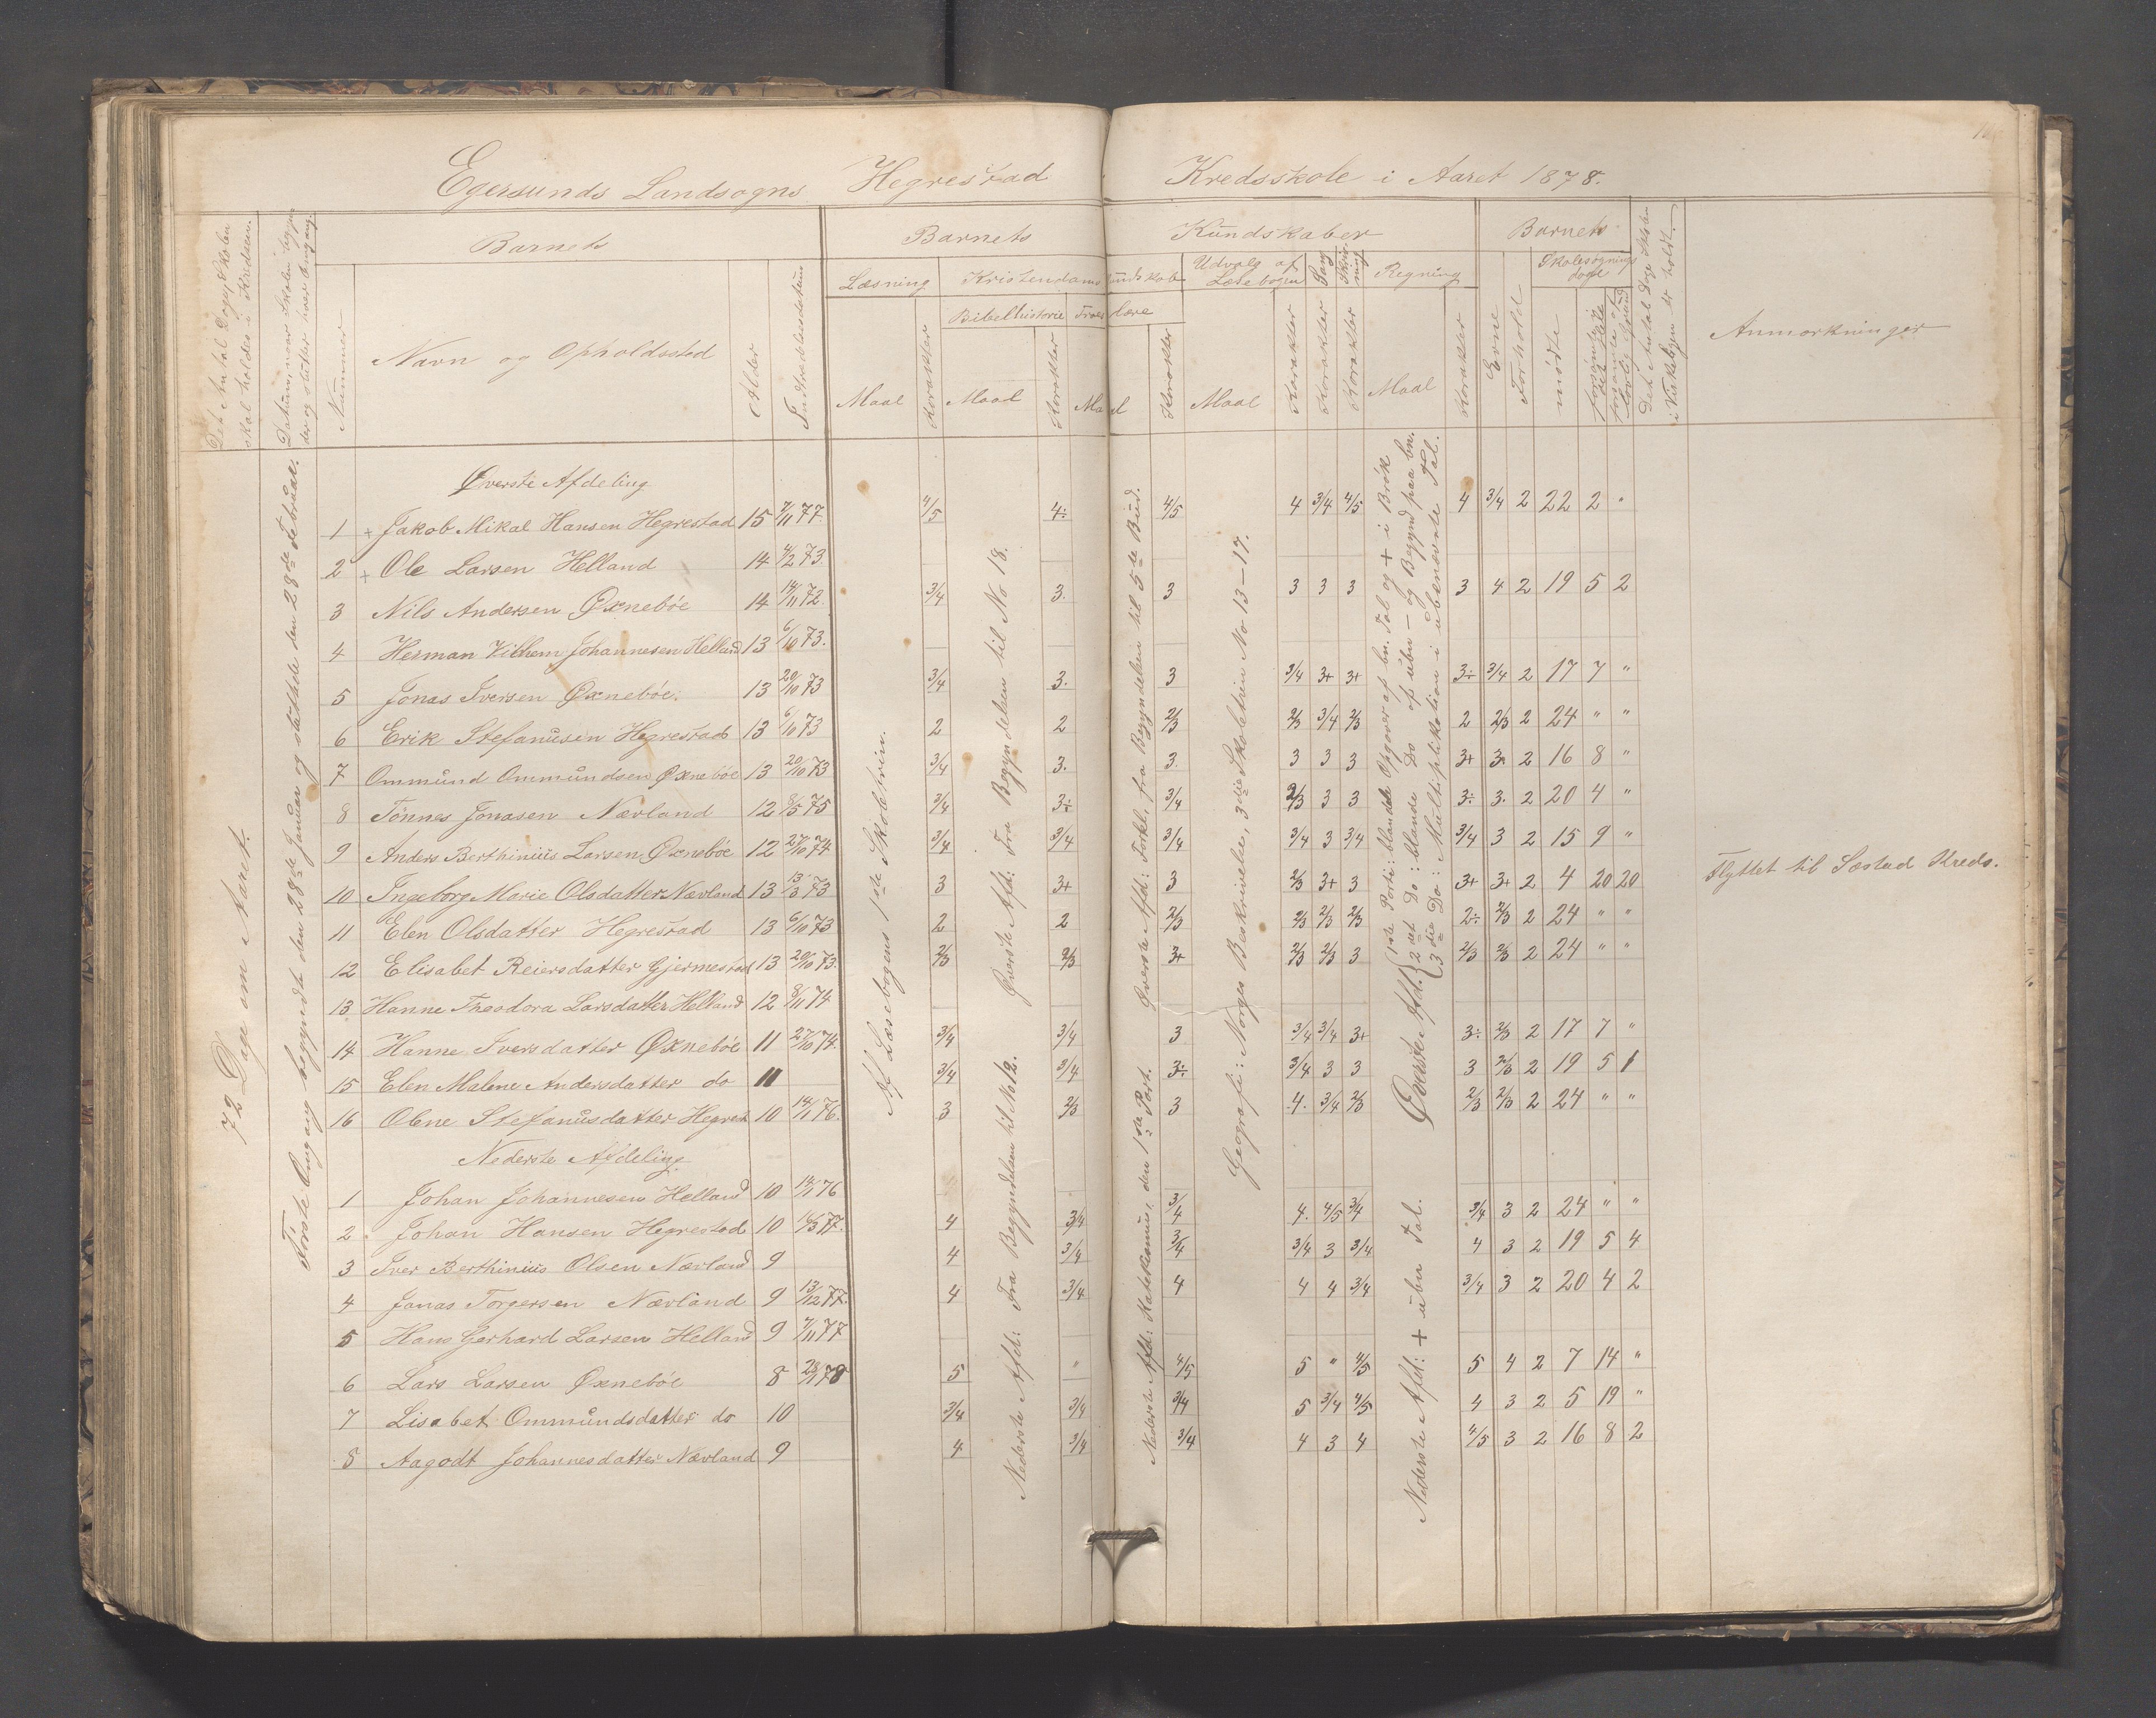 Egersunds Landsogns Hegrestad Kredsskole i Aaret 1878.
Det Antal Dage, Skolen skal holdes i Kredsen.
Datum, naar Skolen begynder og slutter hver Omgang.
Barnets
Nummer
Navn og Opholdssted
Alder
Indtrædelsesdatum
Barnets Kundskaber
Læsning
Maal
Karakter
Kristendomskundskab
Bibelhistorie
Maal
Karakter
Troeslære
Maal
Karakter
Udvalg af Læsebogen
Maal
Karakter
Sang
Karakter
Skrivning
Karakter
Regning
Maal
Karakter
Barnets
Evne
Forhold
Skolesøgningsdage
mødte
forsømte det Hele
forsømte af lovlig Grund
Det Antal Dage Skolen i Virkeligen er holdt.
Anmærkninger
72 Dage om Aaret.
Første Omgang begyndt den 28de Januar og sluttede den 28de Februar.
Af Læsebogens 1ste Skoletrin.
Øverste Afd: Fra Begyndelsen til No 18.
Nederste Afd: Fra Begyndelsen til No 12.
Øverste Afd: Forkl. fra Begyndelsen til 5te Bud.
Nederste Afd: Katekismus, den 1ste Part.
Geografi: Norges Beskrivelse, 3die Skoletrin No 13-17.
Øverste Afd. 1ste Parti: blandede Opgaver af bn. Tal og + i Brøk
2det Do: blandede Do af ubn - og Begynd paa bn.
3die Do: Multiplikation i ubenævnte Tal.
Nederste Afd: + ubn Tal.
Øverste Afdeling
1 + Jakob Mikal Hansen Hegrestad 15 7/11 77 4/5 4÷ 4/5 4 3/4 4/5 4 3/4 2 22 2 "
2 + Ole Larsen Helland 14 4/2 73
3 Nils Andersen Øxnebøe 14 14/11 72 3/4 3. 3 3 3 3 3 4 2 19 5 2
4 Herman Vilhem Johannesen Helland 13 6/10 73.
5 Jonas Iversen Øxnebøe. 13 20/10 73 3/4 3. 3 3/4 3+ 3+ 3÷ 3/4 2 17 7 "
6 Erik Stefanusen Hegrestad 13 6/10 73 2 2 2/3 2/3 3/4 2/3 2 2/3 2 24 " "
7 Ommund Ommundsen Øxnebøe 13 20/10 73 3/4 3. 3. 3 3 3 3+ 3. 2 16 8 "
8 Tønnes Jonasen Nævland 12 8/5 75 3/4 3÷ 3/4 2/3 3 3 3÷ 3. 2 20 4 "
9 Anders Berthinius Larsen Øxnebøe 12 27/10 74 3/4 3/4 3/4 3/4 3 3/4 3/4 3 2 15 9 "
10 Ingeborg Marie Olsdatter Nævland 13 13/3 73 3 3+ 3 2/3 3+ 3 3+ 3+ 2 4 20 20 Flyttet til Sæstad Kreds.
11 Elen Olsdatter Hegrestad 13 6/10 73 2 2 2/3 2/3 2/3 2/3 2÷ 2/3 2 24 " "
12 Elisabet Reiersdatter Gjermestad 13 20/10 73. 2/3 2/3 3+ 2/3 2/3 3 2/3 2/3 2 24 " "
13 Hanne Theodora Larsdatter Helland 12 8/11 74
14 Hanne Iversdatter Øxnebøe 11 27/10 74. 3/4 3/4 3 3/4 3/4 3+ 3÷ 2/3 2 17 7 "
15 Elen Malene Andersdatter do 11 3/4 3/4 3÷ 3/4 3 3 3 2/3 2 19 5 1
16 Olene Stefanusdatter Hegrest 10 14/1 76. 3 2/3 3 4. 3/4 2/3 2/3 2/3 2 24 " "
Nederste Afdeling.
1 Johan Johannesen Helland 10 14/1 76
2 Johan Hansen Hegrestad 10 14/3 77. 4 3/4 3/4 4. 4/5 3/4 3/4 3 2 24 " "
3 Iver Berthinius Olsen Nævland 9 4 3/4 3/4 3/4 3 3/4 4 3 2 19 5 4
4 Jonas Torgersen Nævland 9 13/12 77. 4 3/4 4 4 4 3/4 3/4 3 2 20 4 2
5 Hans Gerhard Larsen Helland 9 7/11 77
6 Lars Larsen Øxnebøe 8 28/1 78 5 " 4/5 5 " 4/5 5 4 2 7 14 "
7 Lisabet Ommundsdatter do 10 3/4 3/4 3/4 5 3/4 4/5 4 3 2 5 19 "
8 Aagodt Johannesdatter Nævland 9 4 3/4 3/4 4 3 4 4/5 3 2 16 8 2